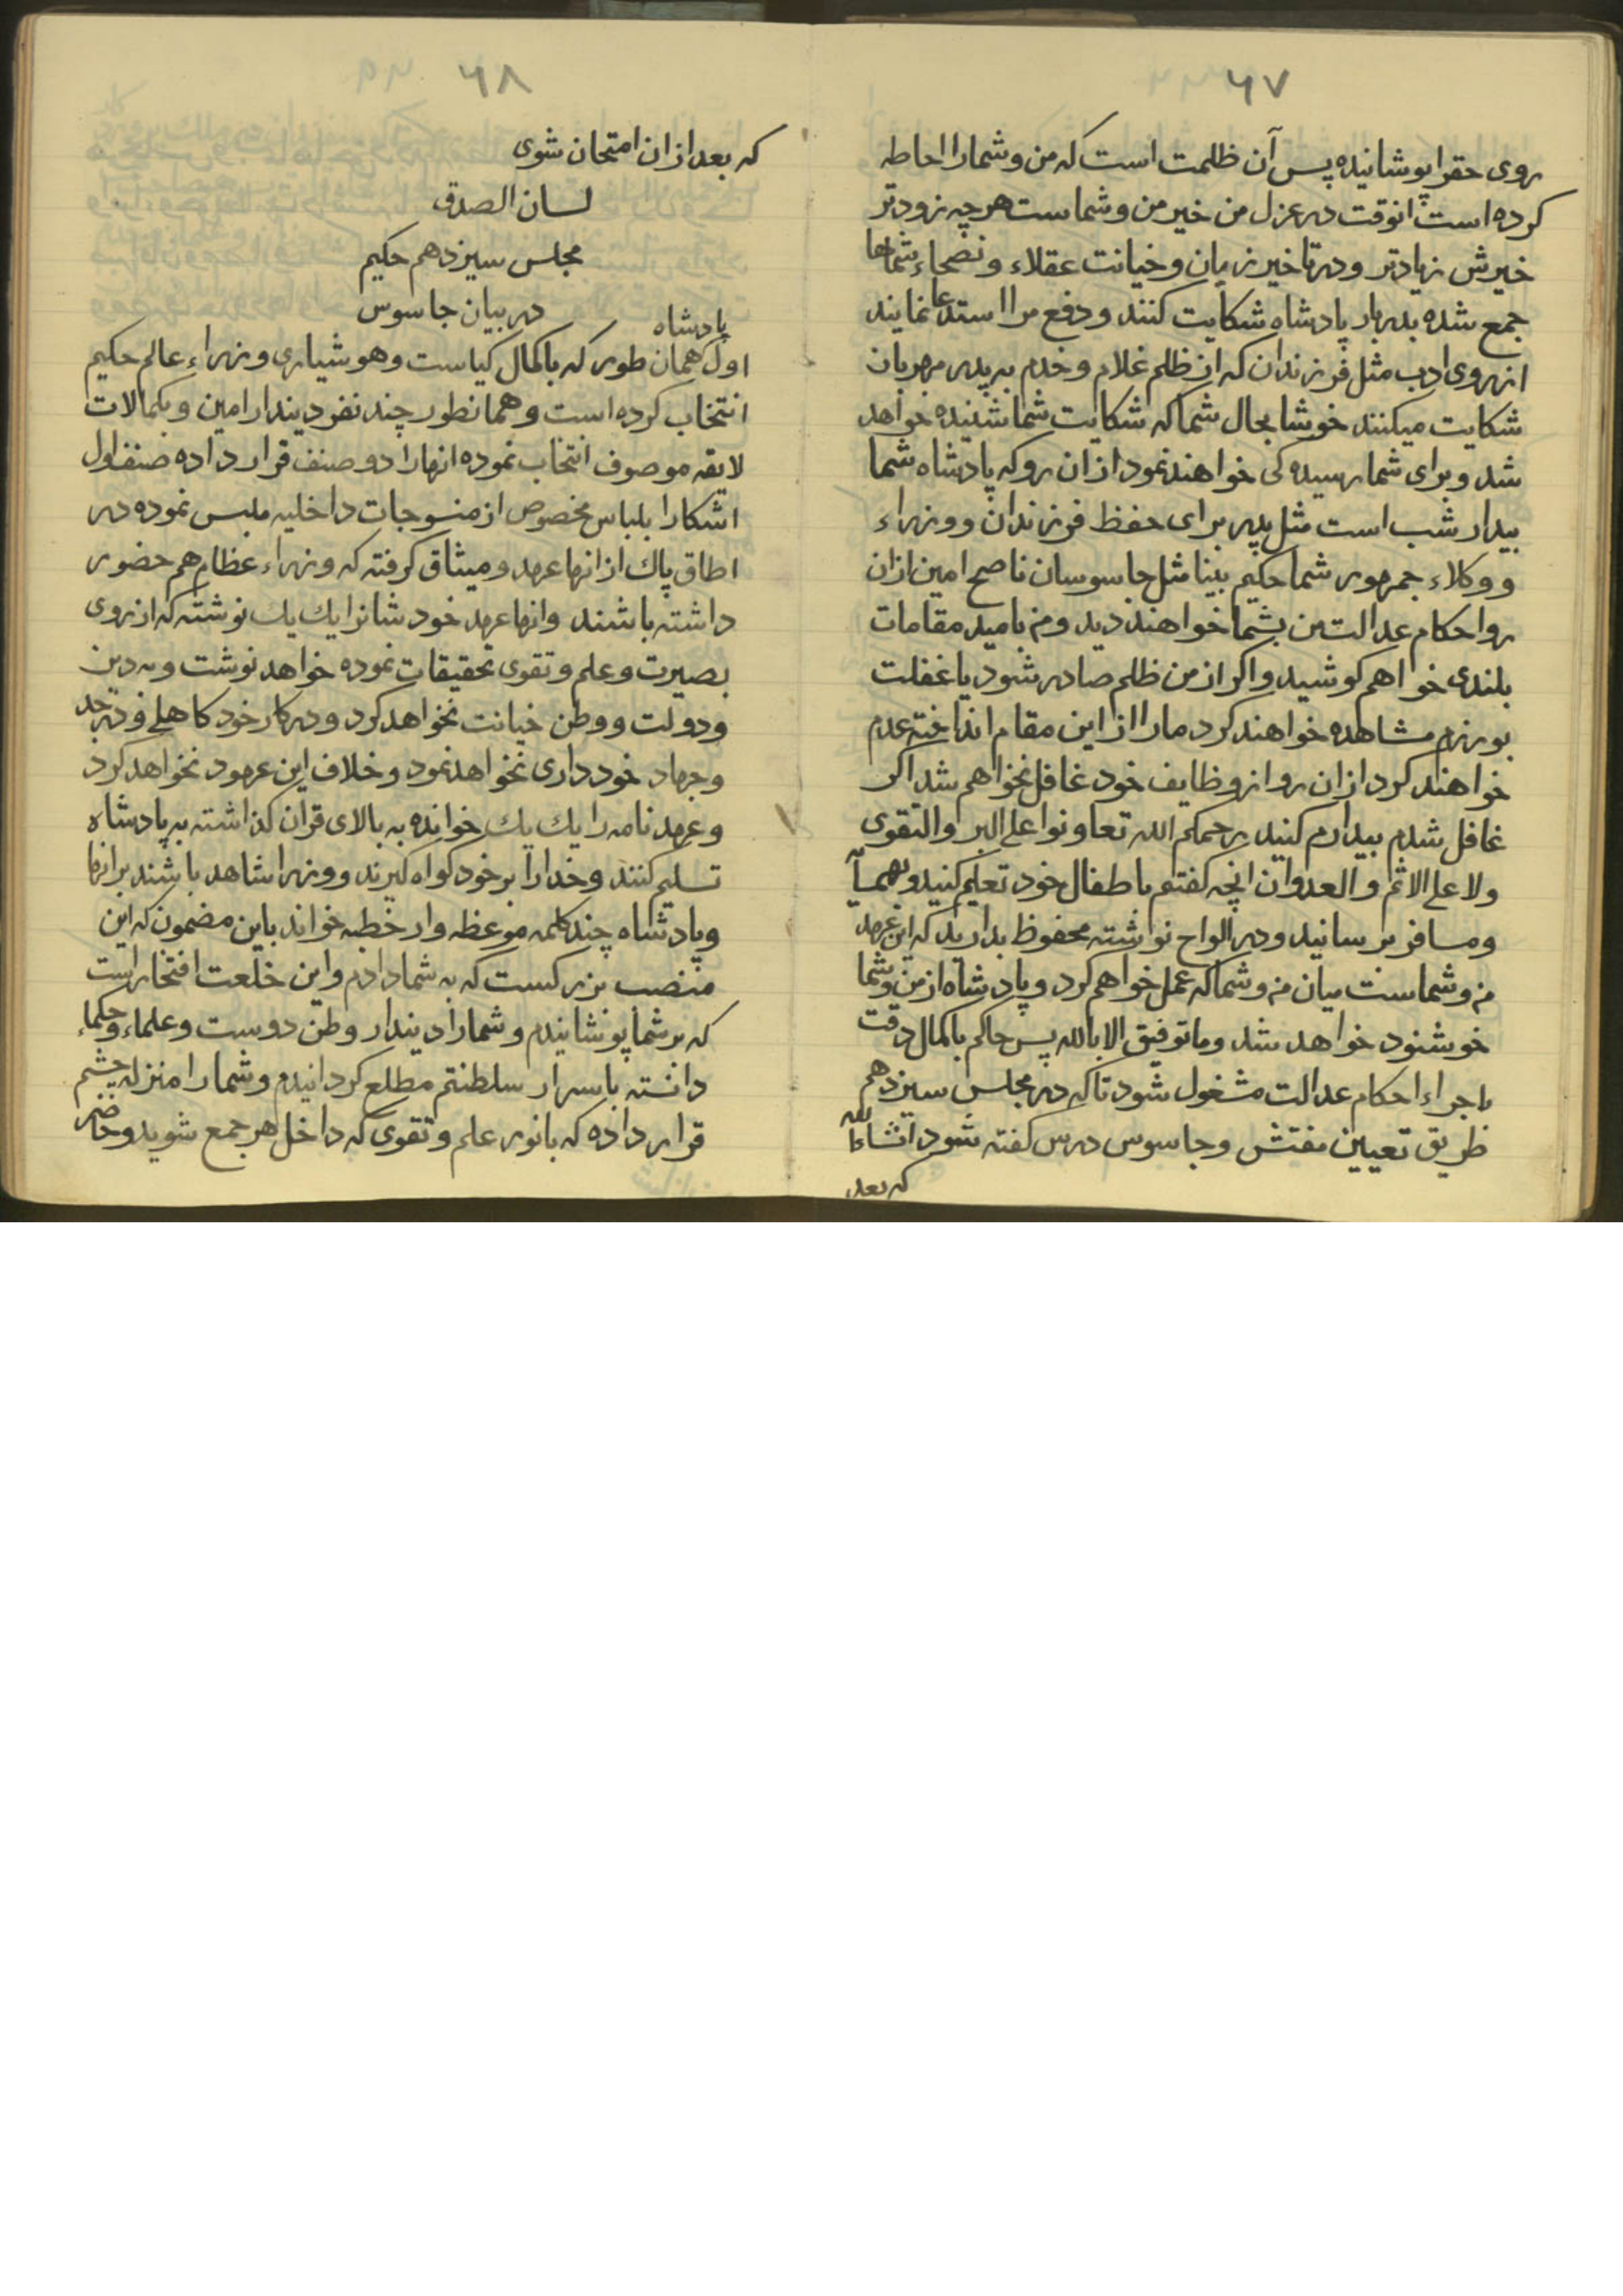 ۶۷
روی حقرا پوشانیده پس آن ظلمت است که من و شمارا احاطه
کرده است انوقت در عزل من خیر من و شماست هرچه زودتر
خیرش زیادتر و در تاخیر زیان و خیانت عقلاء و نصحاء شماها
جمع شده بدربار پادشاه شکایت کنند و دفع مرا استدعا نمایند
از روی ادب مثل فرزندان که از ظلم غلام و خدم به پدر مهربان
شکایت میکنند خوشا بحال شما که شکایت شما شنیده خواهد
شد و برای شما رسیده کی خواهند نمود از ان رو که پادشاه شما
بیدار شب است مثل پدر برای حفظ فرزندان و وزراء
و وکلاء جمهور شما حکیم بینا مثل جاسوسان ناصح امین ازان
رو احکام عدالت من بشما خواهند دید و من بامید مقامات
بلندی خواهم کوشید و اکر از من ظلم صادر شود یا غفلت
بورزم مشاهده خواهند کرد مارا از این مقام انداخته عدم
خواهند کرد ازان رو از وظایف خود غافل نخواهم شد اکر
غافل شدم بیدارم کنید یرحمکم الله تعاونوا علی البر والتقوی
ولا علی الاثم والعدوان انچه کفتم باطفال خود تعلیم کنید و
و مسافر برسانید و در الواح نوشته محفوظ بدارید که این عهد
من و شماست میان من و شما که عمل خواهم کرد و پادشاه از من و شما
خوشنود خواهد شد وما توفیق الا بالله پس حاکم باکمال دقت
باجراء احکام عدالت مشغول شود تا که در مجلس سیزدهم
طریق تعیین مفتش و جاسوس درس کفته شود انشاءالله
که بعد
۶۸
که بعد ازان امتحان شوی
لسان الصدق
مجلس سیزدهم حکیم
در بیان جاسوس
پادشاه
اول همان طور که باکمال کیاست و هوشیاری وزراء عالم حکیم
انتخاب کرده است و همانطور چند نفر دیندار امین و بکمالات
لایقه موصوف انتخاب نموده انهارا دو صنف قرار داده صنف اول
اشکارا بلباس مخصوص از منسوجات داخلیه ملبس نموده در
اطاق پاك از انها عهد و میثاق کرفته که وزراء عظام هم حضور
داشته باشند وانها عهد خودشانرا یك یك نوشته که از روی
بصیرت و علم و تقوی تحقیقات نموده خواهد نوشت و به دین
و دولت و وطن خیانت نخواهد کرد و در کار خود کاهلی و در جد
و جهاد خود داری نخواهد نمود و خلاف این عهود نخواهد کرد
و عهد نامه را یك یك خوانده به بالای قران کذاشته به پادشاه
تسلیم کنند و خدارا بر خود کواه کیرند و وزرا شاهد باشند بر انها
و پادشاه چند کلمه موعظه وار خطبه خواند باین مضمون که این
منصب بزرکست که به شما دادم و این خلعت افتخار است
که بر شما پوشانیدم و شمارا دیندار وطن دوست و علماء و حکماء
دانسته باسرار سلطنتم مطلع کردانیدم و شمارا منزله چشم
قرار داده که بانور علم و تقوی که داخل هر جمع شوید و حاضر